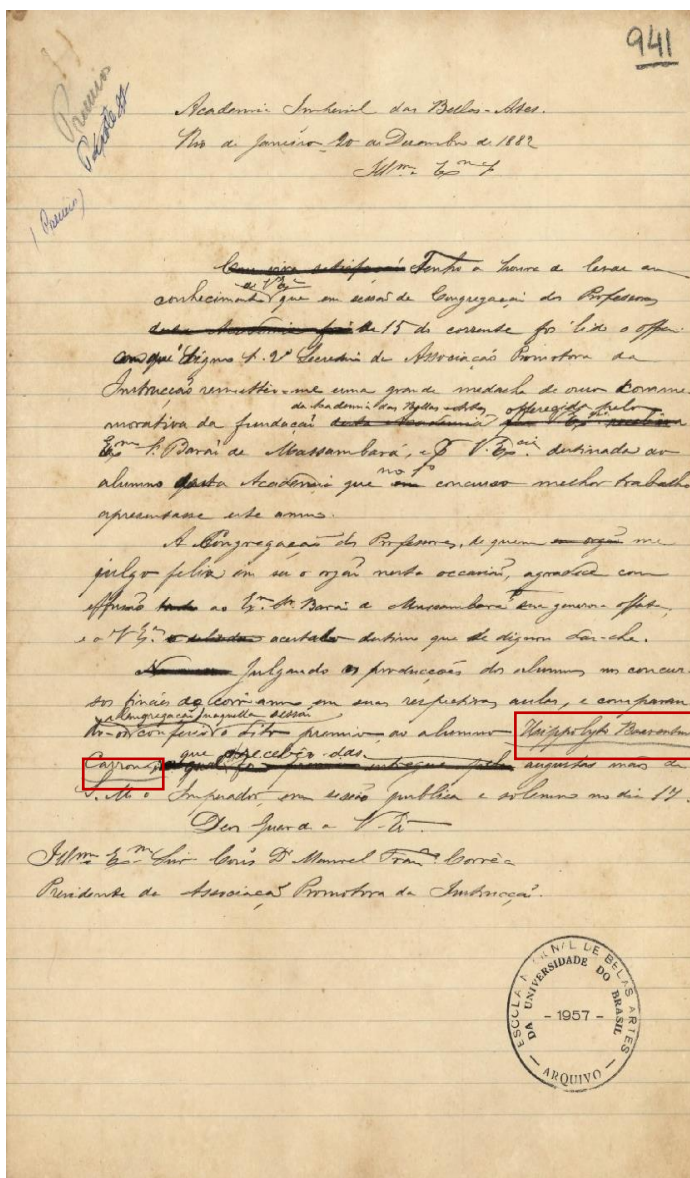 941
Premio
Pacote 21
(Premio)
Academia Imperial das Bellas-Artes.
Rio de Janeiro 20 de Dezembro de 1882
Illm. Exm. Sr
Com viva satisfação Tenho a honra de levar ao
de V. Ex.ª
conhecimento que em sessão de Congregação dos Professores
desta Academia de 15 do corrente foi lido o officio
em que dignou S. 2º Secretario da Associação Promotora da
Instrucção remetteu-me uma grande medalha de ouro comme-
da Academia das Bellas-Artes, offerecida pelo
morativa da fundação desta Academia
Exm. Sr. Barão de Massambará, e V. Ex.cia destinada ao
alumno desta Academia que no concurso melhor trabalho
apresentasse este anno.
A Congregação dos Professores, de quem me
julgo feliz em ser o orgão nesta occasião, agradece com
effusão ao Ex. Sr. Barão de Massambará sua generosa offerta,
e a V. Ex.ª acertado destino que se dignou dar-lhe.
Julgando as producções dos alumnos nos concur-
sos finaes do corr. anno em suas respectivas aulas, e comparan-
a Congregação naquella sessão
do-os conferio dito premio ao alumno Haippolyto Boaventura
que o recebeo das
Carron augustas mãos de
S. M. o Imperador, em sessão publica e solemne no dia 17.
Deos Guarde a V. Ex.
Illm. Exm. Snr. Cons. Dr. Manoel Fran. Corrêa
Presidente da Associação Promotora da Instrucção.
ESCOLA NACIONAL DE BELAS ARTES
DA UNIVERSIDADE DO BRASIL
- 1957 -
ARQUIVO